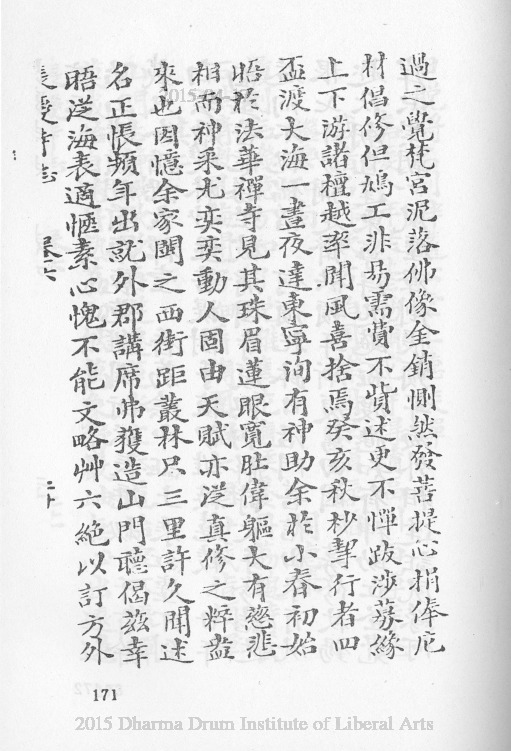 過之覺梵宮泥落佛像金銷惻然發菩提心捐俸庀
材倡修但鳩工非易需費不貲述更不憚跋涉募緣
上下游諸檀越率聞風喜捨焉癸亥秋杪挈行者四
盃渡大海一晝夜達東寧洵有神助余於小春初始
晤於法華禪寺見其珠眉蓮眼寬肚偉軀大有慈悲
相而神采尤奕奕動人固由天賦亦從真修之粹盎
來也因憶余家閩之西街距叢林只三里許久聞述
名正悵頻年出就外郡講席弗獲造山門聽偈茲幸
晤從海表適愜素心愧不能文略艸六絕以訂方外
卷六
二十
171
2015 Dharma Drum Institute of Liberal Arts